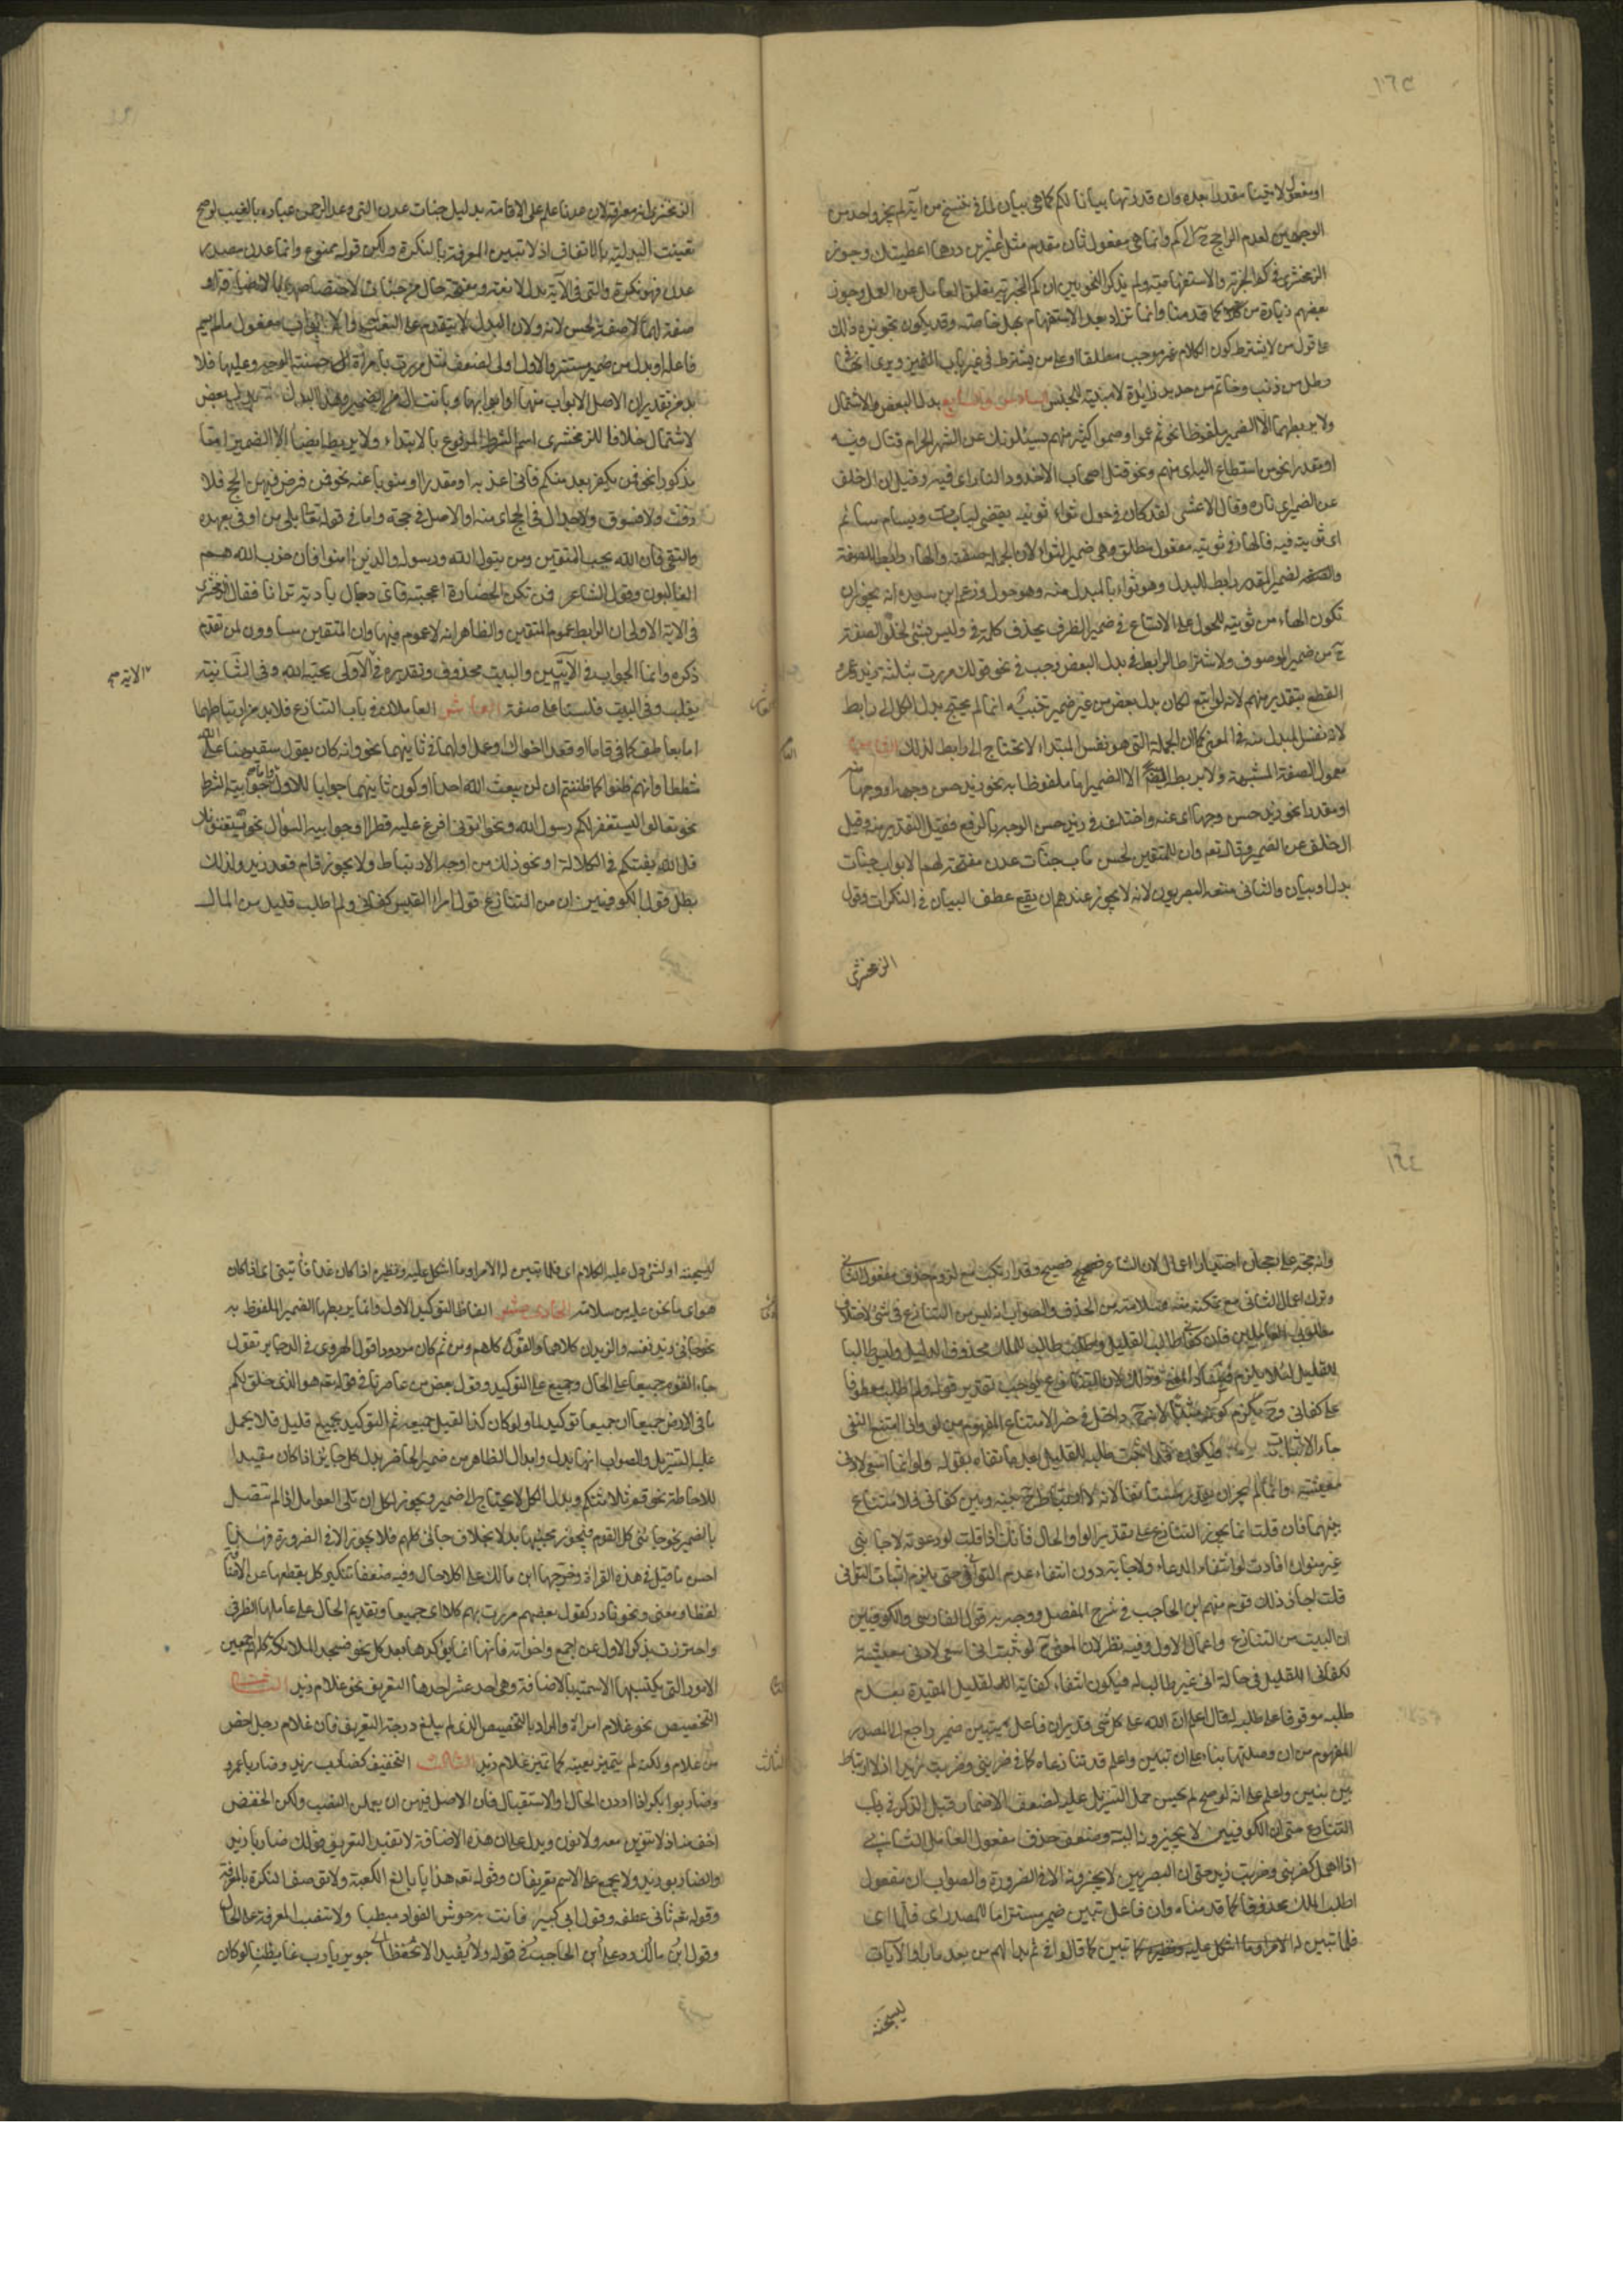 ١٦٣
او مفعول لاتينا مقدرا بعده وان قدرتها بيانا لكم كما هي بيان لما في ننسخ من آية لم يجز واحد من
الوجهين لعدم الراجع ح الى كم وانما هي مفعول ثان مقدم مثل اعشرين درهما اعطيتك وجوز
الزمخشري في كم الخبرية والاستفهامية ولم يذكر النحويين ان كم الخبرية تعلق العامل عن العمل وجوز
بعضهم زيادة من كما قدمنا وانما تزاد بعد الاستفهام بهل خاصة وقد يكون تجويزه ذلك
على قول من لا يشترط كون الكلام غير موجب مطلقا او على من يشترط في غير باب التمييز ويرى انها في
رطل من زيت وخاتم من حديد زايدة لا مبينة للجنس السادس والسابع بدلا البعض والاشتمال
ولا يربطهما الا الضمير ملفوظا نحو ثم عموا وصموا كثير منهم يسئلونك عن الشهر الحرام قتال فيه
او مقدرا نحو من استطاع اي منهم ونحو قتل اصحاب الاخدود النار اي فيه وقيل ان الخلف
عن الضمير اي ناره وقال الاعشى لقد كان في حول ثواء ثويته تقضي لبانات ويسام سائم
اي ثويته فيه فالهاء في ثويته مفعول مطلق وهي ضمير الثواء لان الجملة صفته والهاء رابط الصفة
والضمير المقدر رابط للبدل وهو ثواء بالمبدل منه وهو حول وزعم ابن سيده انه يجوز ان
تكون الهاء من ثويته للحول على الاتساع في ضمير الظرف بحذف كلمة في وليس بشئ لخلو الصفة
ح من ضمير الموصوف ولاشتراط الرابط في بدل البعض وجب في نحو قولك مررت بثلثة زيد وعمرو
القطع بتقدير منهم لانه لو اتبع لكان بدل بعض من غير ضمير تنبيه انما لم يحتج بدل الكل الى رابط
لانه نفس المبدل منه في المعنى كما ان الجملة التي هي نفس المبتداء لا تحتاج الى رابط لذلك الثامن
معمول الصفة المشبهة ولا يربط الا الضمير اما ملفوظا به نحو زيد حسن وجهه او وجها منه
او مقدرا نحو زيد حسن وجها اي عنه واختلف في زيد حسن الوجه بالرفع فقيل التقدير منه وقيل
الخلف عن الضمير وقال تعه وان للمتقين لحسن مآب جنات عدن مفتحة لهم الابواب جنات
بدل او بيان والثاني منعه البصريون لانه لا يجوز عندهم ان يقع عطف البيان في النكرات وقول
الزمخشري
الزمخشري انه معرفة لان عدنا علم على الاقامة بدليل جنات عدن التي وعد الرحمن عباده بالغيب لو صح
تعينت البدلية بالاتفاق اذ لا تبين المعرفة بالنكرة ولكن قوله ممنوع وانما عدن مصدر
عدن فهو نكرة والتي في الآية بدل لا نعت ومفتحة حال من جنات لاختصاصها بالاضافة او
صفة لها لا صفة لحسن لانه ولان البدل لا يتقدم على النعت والابواب مفعول ما لم يسم
فاعله او بدل من ضمير مستتر والاول اولى لضعف مثل مررت بامراة حسنة الوجه وعليهما فلا
بد من تقدير ان الاصل الابواب منها او ابوابها ونابت ال عن الضمير وهذا البدل بدل بعض
لاشتمال خلافا للزمخشري اسم الشرط المرفوع بالابتداء ولا يربطه ايضا الا الضمير اما
مذكورا نحو فمن يكفر بعد منكم فاني اعذبه او مقدرا او منوبا عنه نحو فمن فرض فيهن الحج فلا
رفث ولا فسوق ولا جدال في الحج اي منه او الاصل في حجه واما في قوله تعه بلى من اوفى بعهده
واتقى فان الله يحب المتقين ومن يتول الله ورسوله والذين امنوا فان حزب الله هم
الغالبون وقول الشاعر فمن تكن الحضارة اعجبته فاي رجال بادية ترانا فقال الزمخشري
في الاية الاولى ان الرابط عموم المتقين والظاهر انه لا عموم فيها وان المتقين مساوون لمن تقدم
ذكره وانما الجواب في الآيتين والبيت محذوف وتقديره في الاولى يحبه الله وفي الثانية
الاية صح
يغلب وفي البيت فلسنا على صفته العاشر العاملان في باب التنازع فلا بد من ارتباطهما
اما بعاطف كما في قاما وقعد اخواك او عمل اولهما في ثانيهما نحو وانه كان يقول سفيهنا على الله
شططا وانهم ظنوا كما ظننتم ان لن يبعث الله احدا او كون ثانيهما جوابا للاول اما جوابية الشرط
نحو تعالوا يستغفر لكم رسول الله ونحو اتوني افرغ عليه قطرا او جوابية السؤال نحو يستفتونك
قل الله يفتيكم في الكلالة او نحو ذلك من اوجه الارتباط ولا يجوز قام قعد زيد ولذلك
بطل قول الكوفيين ان من التنازع قول امرا القيس كفاني ولم اطلب قليل من المال
١٦٤
وانه حجة على رجحان اختيار اعمال الاول لان الشاعر فصيح وقد ارتكبه مع لزوم حذف مفعول الثاني
وترك اعمال الثاني مع تمكنه منه وسلامته من الحذف والصواب انه ليس من التنازع في شئ لاختلاف
مطلوبي العاملين فان كفاني طالب للقليل واطلب طالب للملك محذوفا للدليل وليس طالبا
للقليل لئلا يلزم فساد المعنى وذلك لان التنازع يوجب تقدير قوله ولم اطلب معطوفا
على كفاني وح يلزم كونه مثبتا لانه ح داخل في خبر الامتناع المفهوم من لو واذا امتنع النفي
جاء الاثبات فيكون قد اثبت طلبه للقليل بعد ما نفاه بقوله ولو انما اسعى لادنى
معيشة وانما لم يجز ان يقدر مستانفا لانه لا ارتباط ح بينه وبين كفاني فلا تنازع
بينهما فان قلت انما يجوز التنازع على تقدير الواو للحال فانك اذا قلت لو دعوته لاجابني
غير متوان افادت لو انتفاء الدعاء والاجابة دون انتفاء عدم التواني حتى يلزم اثبات التواني
قلت اجاز ذلك قوم منهم ابن الحاجب في شرح المفصل ووجه به قول الفارسي والكوفيين
ان البيت من التنازع واعمال الاول وفيه نظر لان المعنى ح لو ثبت اني اسعى لادنى معيشة
لكفاني القليل في حالة اني غير طالب له فيكون انتفاء كفاية القليل المقيدة بعدم
طلبه موقوفا على طلبه له قال اعلم ان الله على كل شئ قدير ان فاعل تبين ضمير راجع الى المصدر
المفهوم من ان وصلتها بناء على ان تبين واعلم قد تنازعاه كما في ضربني وضربت زيدا اذ لا ارتباط
بين تبين واعلم على انه لو صح لم يحسن حمل التنزيل عليه لضعف الاضمار قبل الذكر في باب
التنازع حتى ان الكوفيين لا يجيزونه البتة وضعف حذف مفعول العامل الثاني
اذا اهمل كضربني وضربت زيد حتى ان البصريين لا يجيزونه الا في الضرورة والصواب ان مفعول
اطلب الملك محذوفا كما قدمناه وان فاعل تبين ضمير مستتر اما للمصدر اي فلما اي
فلما تبين له الامر وما اشكل عليه ونظيره كما تبين كما قالوا في ثم بدا لهم من بعد ما راوا الآيات
ليسجننه
ليسجننه او لشئ دل عليه الكلام اي فلما تبين له الامر او ما اشكل عليه ونظيره اذا كان غدا فأتني اي اذا كان
هو اي ما نحن عليه من سلامة الحادي عشر الفاظ التوكيد الاول وانما يربطها الضمير الملفوظ به
نحو جاءني زيد نفسه والزيدان كلاهما والقوم كلهم ومن ثم كان مردودا قول الهروي في الدخاير تقول
جاء القوم جميعا على الحال وجميع على التوكيد وقول بعض من عاصرنا في قوله تعه هو الذي خلق لكم
ما في الارض جميعا ان جميعا توكيد لما ولو كان كذا لقيل جميعه ثم التوكيد بجميع قليل فلا يحمل
عليه التنزيل والصواب انها بدل وابدال الظاهر من ضمير الحاضر بدل كل جايز اذا كان مفيدا
للاحاطة نحو قمتم ثلاثتكم وبدل الكل لا يحتاج الى ضمير ويجوز لكل ان تلي العوامل اذا لم تتصل
بالضمير نحو جاءني كل القوم فيجوز مجيئها بدلا بخلاف جاءني كلهم فلا يجوز الا في الضرورة فهذا
احسن ما قيل في هذه القراءة وخرجها ابن مالك على ان كلا حال وفيه ضعفان تنكير كل بقطعها عن الاضافة
لفظا ومعنى وهو نادر كقول بعضهم مررت بهم كلا اي جميعا وتقديم الحال على عاملها الظرفي
واحترزت بذكر الاول عن اجمع واخواته فانها انما يؤكد بها بعد كل نحو فسجد الملائكة كلهم اجمعين
الامور التي يكتسبها الاسم بالاضافة وهي احد عشر احدها التعريف نحو غلام زيد الثاني
التخصيص نحو غلام امراة والمراد بالتخصيص الذي لم يبلغ درجة التعريف فان غلام رجل اخص
من غلام ولكنه لم يتميز بعينه كما تميز غلام زيد الثالث التخفيف كضارب زيد وضاربا عمرو
وضاربوا بكر اذا اردت الحال او الاستقبال فان الاصل فيهن ان يعملن النصب ولكن الخفض
اخف منه اذ لا تنوين معه ولا نون ويدل على ان هذه الاضافة لا تفيد التعريف قولك ضاربا زيد
والضاربو زيد ولا يجمع على الاسم تعريفان وقوله تعه هديا بالغ الكعبة ولا توصف النكرة بالمعرفة
وقوله تعه ثاني عطفه وقول ابي كبير فاتت به حوش الفواد مبطنا ولا تنصب المعرفة على الحال
وقول جرير يا رب غابطنا لو كان